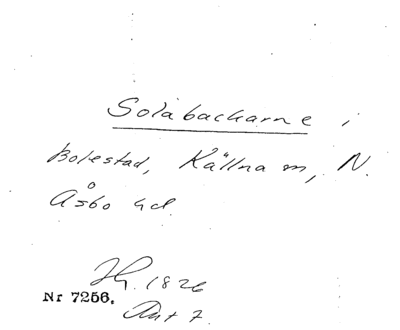 Solabackarne i
Bolestad, Källna sn, N.
Åsbo hd.
Hy. 1826
Nr 7256.
Akt 7.